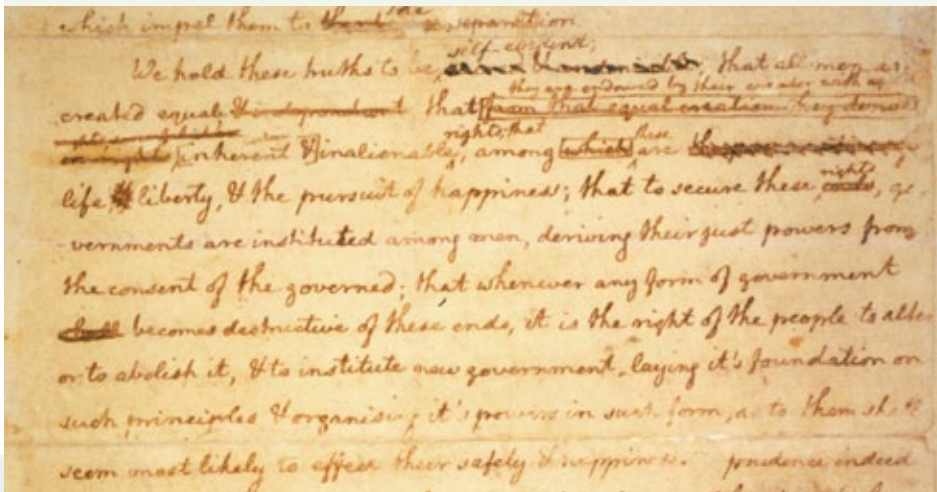 which impel them to the separation.
We hold these truths to be self-evident; that all men are
created equal & independent that they are endowed by their creator with from that equal creation they derive
rights; that
inherent & inalienable, among which these are
life, & liberty, & the pursuit of happiness; that to secure these rights ends, go-
-vernments are instituted among men, deriving their just powers from
the consent of the governed; that whenever any form of government
shall becomes destructive of these ends, it is the right of the people to alter
or to abolish it, & to institute new government, laying it's foundation on
such principles & organising it's powers in such form, as to them shall
seem most likely to effect their safety & happiness. prudence indeed